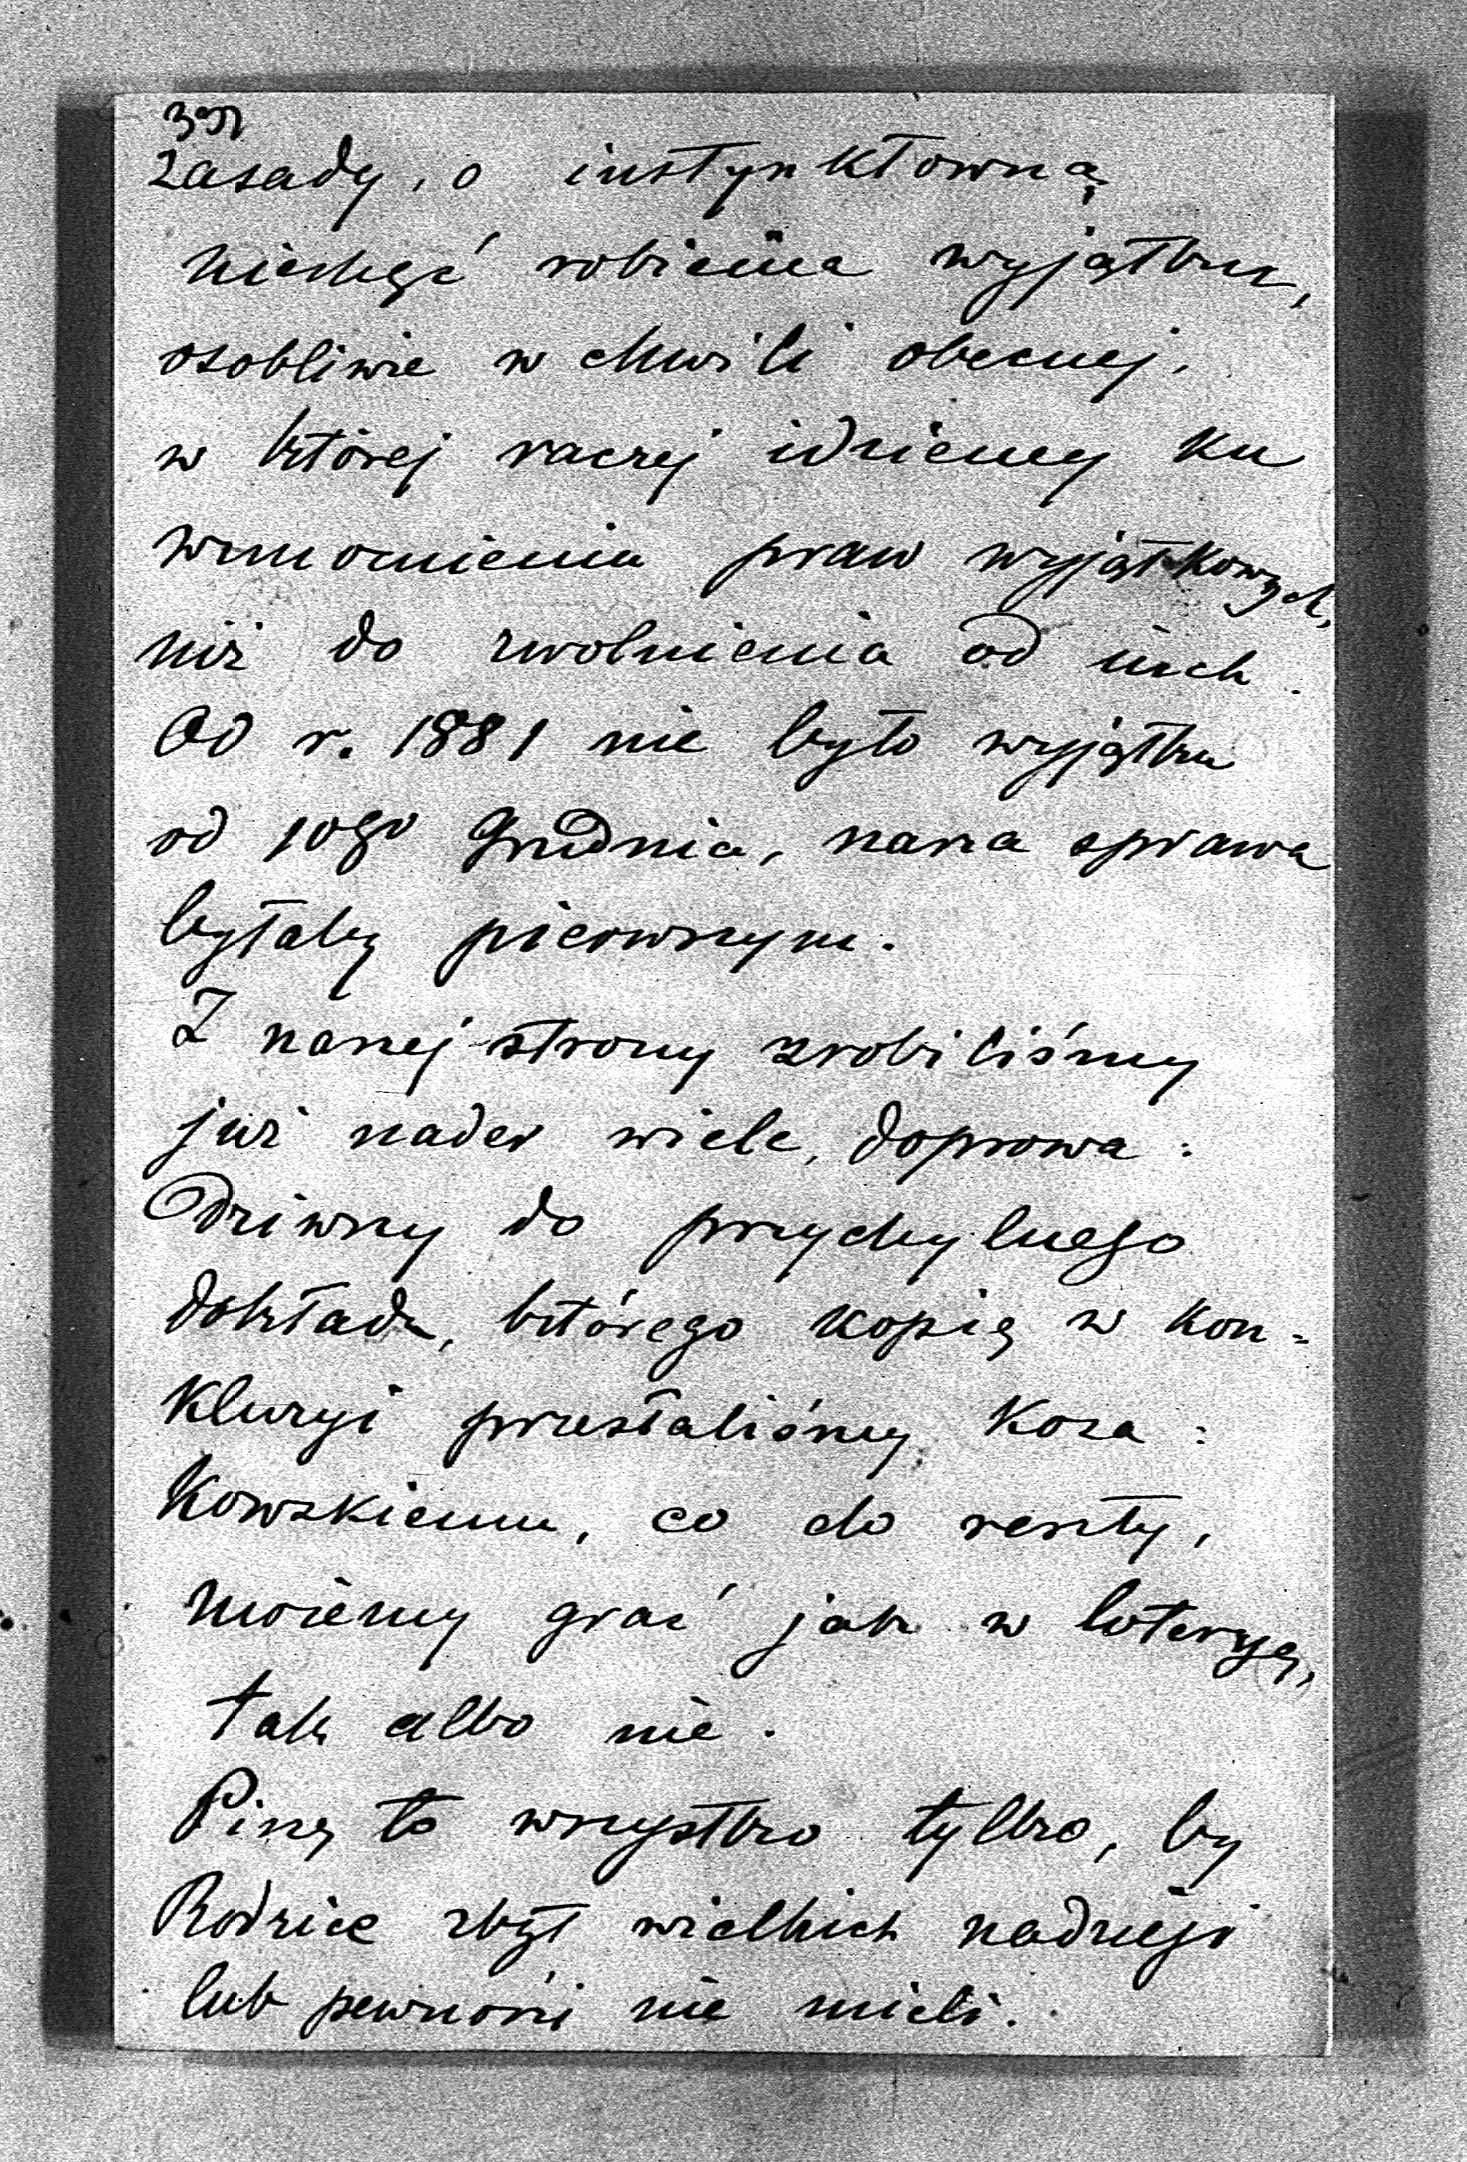 zasady, o instynktowną
niechęć robienia wyjątku,
osobliwie w chwili obecnej,
w której raczej idziemy ku
wzmocnieniu praw wyjątkowych,
niż do zwolnienia od nich.
Od r. 1881 nie było wyjątku
od 10go Grudnia, nasza sprawa
byłaby pierwszym.
Z naszej strony zrobiliśmy
już nader wiele, doprowa:
dziwszy do przychylnego
dokładu, którego kopię w kon=
kluzyi przesłaliśmy Kosa:
kowskiemu, co do reszty,
możemy grać jak w loteryę,
tak albo nie.
Piszę to wszystko tylko, by
Rodzice zbyt wielkich nadzieji
lub pewności nie mieli.